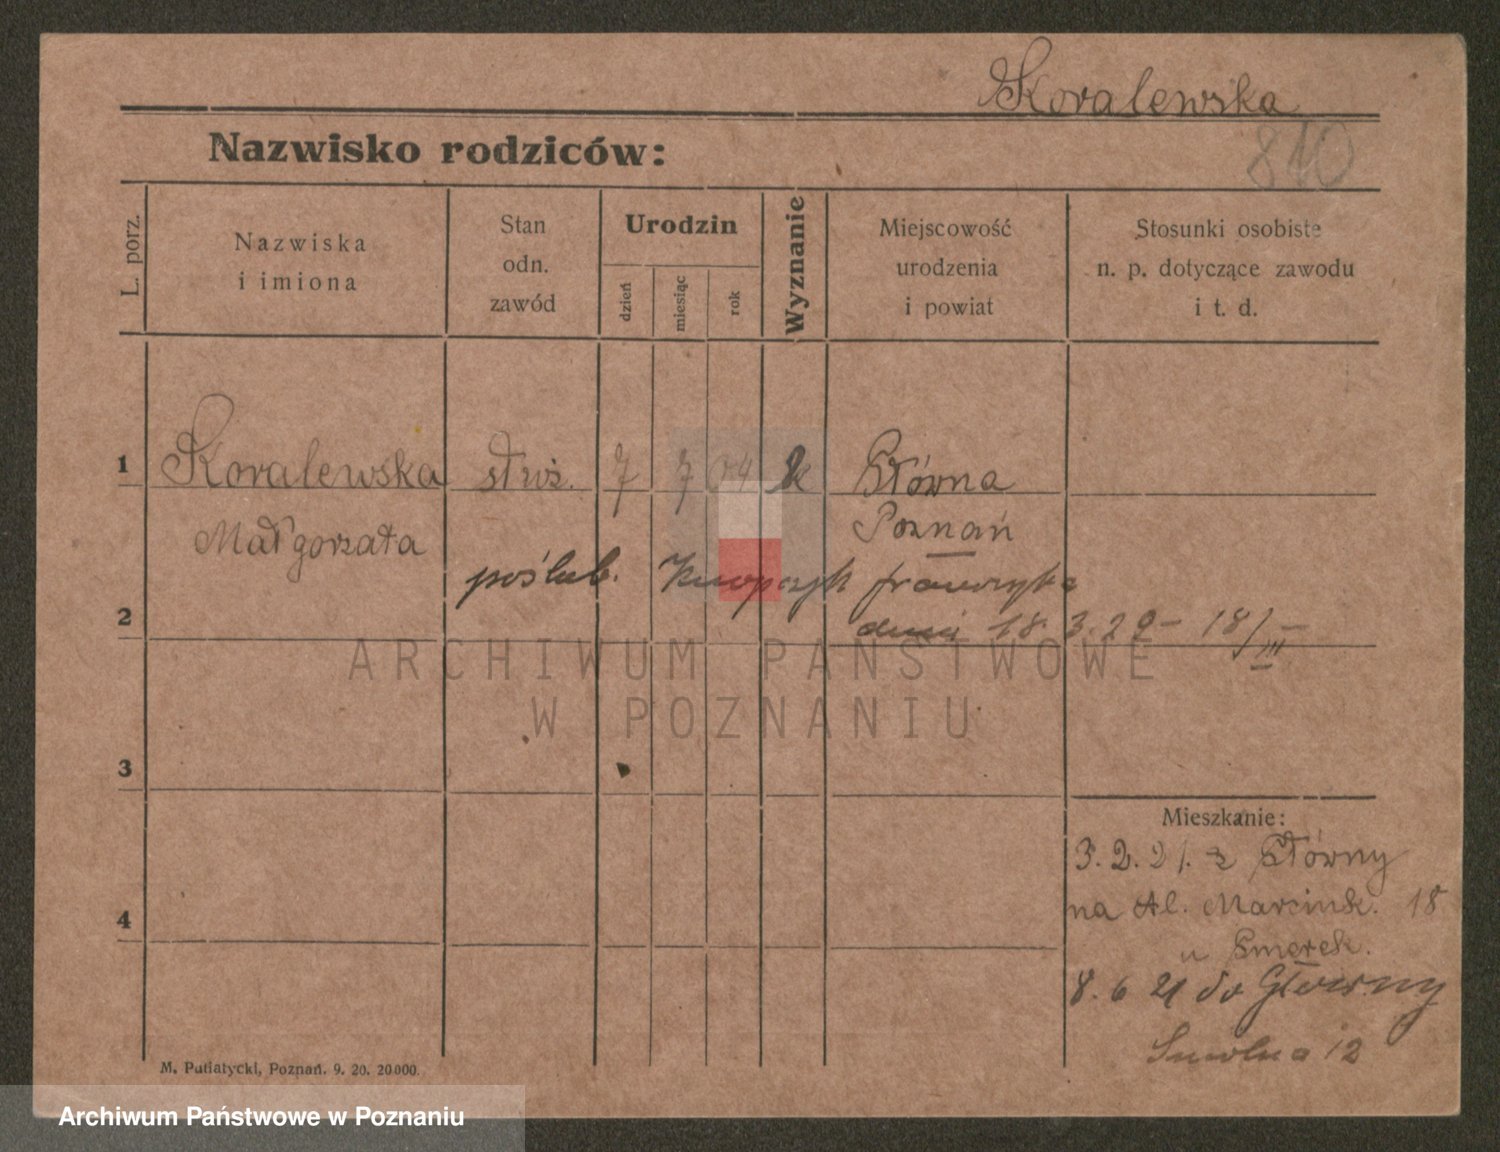 Kovalewska
810
Nazwisko rodziców:
L. porz.
Nazwiska
i imiona
Stan
odn.
zawód
Urodzin
dzień
miesiąc
rok
Wyznanie
Miejscowość
urodzenia
i powiat
Stosunki osobiste
n. p. dotyczące zawodu
i t. d.
1 Kovalewska służ. 7 7 04 k Główna
Małgorzata
Poznań
poślub.
2
18. 3. 29 – 18/III
3
4
Mieszkanie:
3. 2. 21. z Główny
na Al. Marcink. 18
u
8. 6 21 do Główny
Smolna 12
M. Putiatycki, Poznań. 9. 20. 20000.
ARCHIWUM PAŃSTWOWE
W POZNANIU
Archiwum Państwowe w Poznaniu